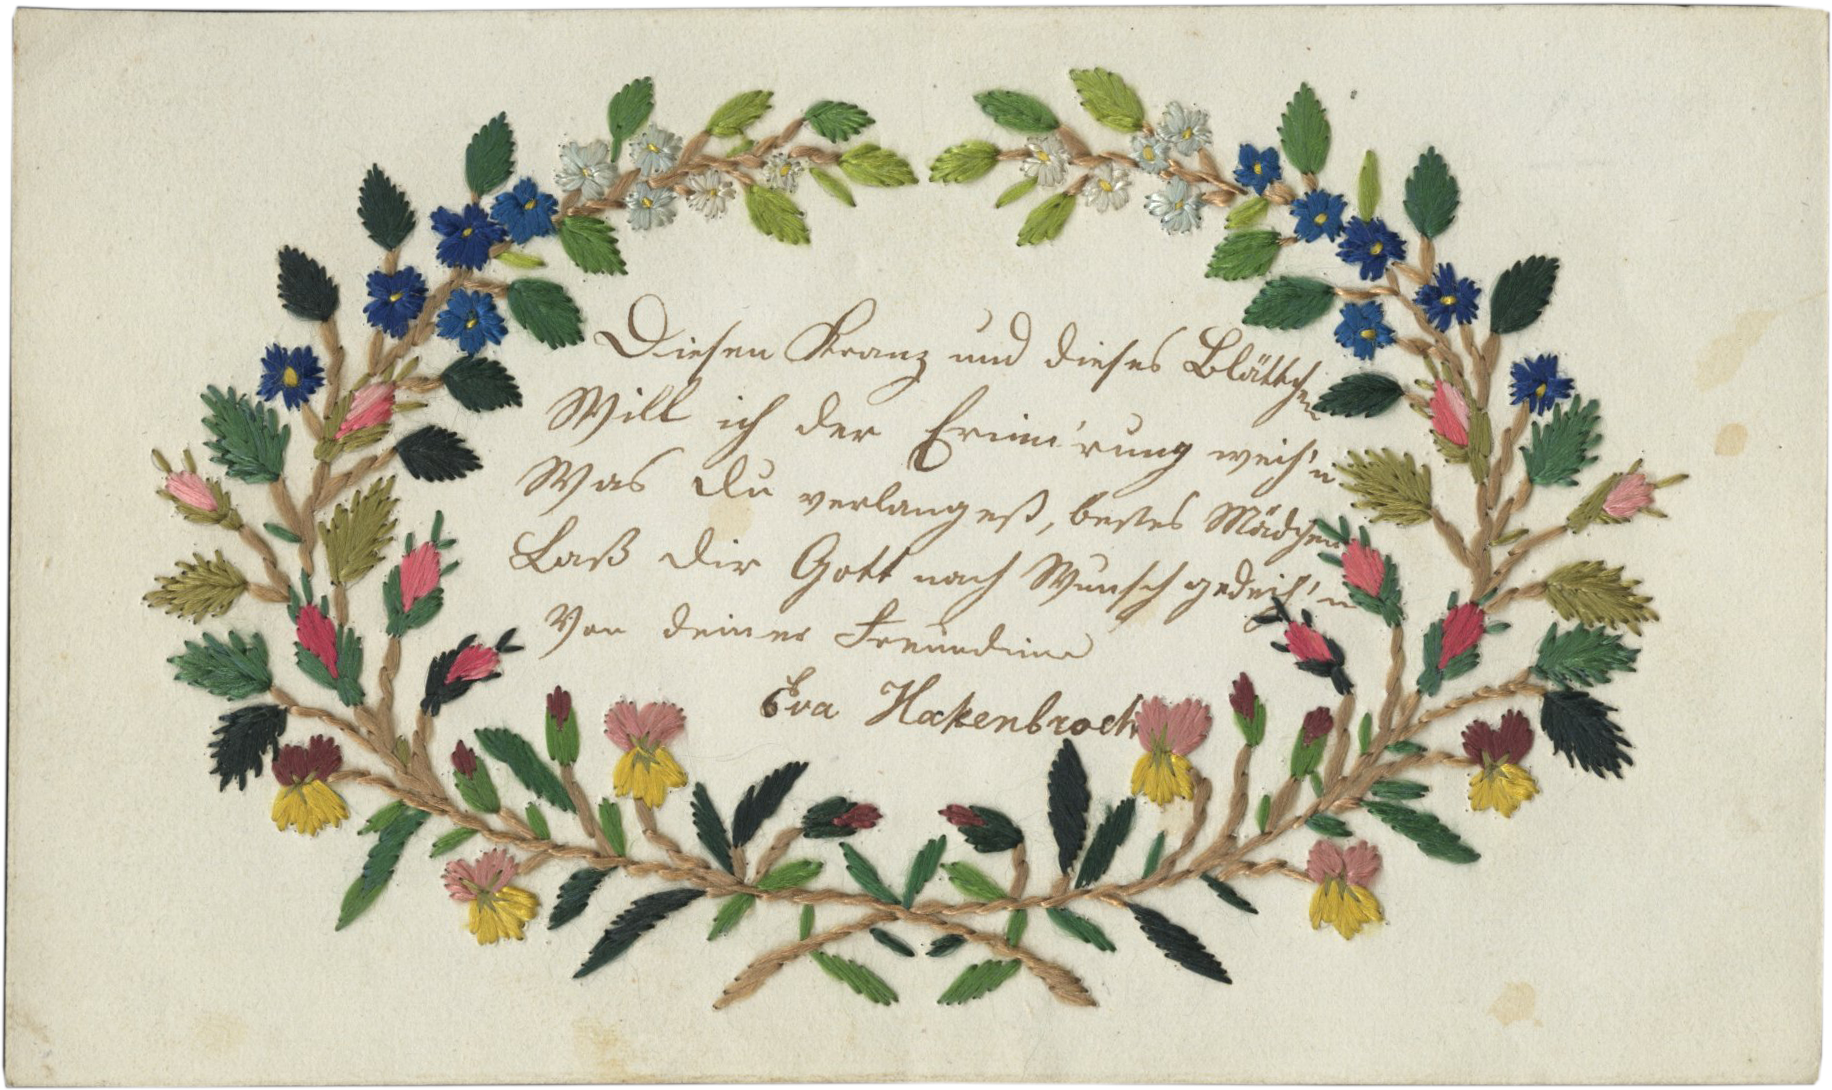 Diesen Kranz und dieses Blättchen
Will ich der Erinn'rung weih'n
Was Du verlangest, bestes Mädchen
Laß Dir Gott nach Wunsch gedeih'n
Von deiner Freundinn
Eva Hakenbroch